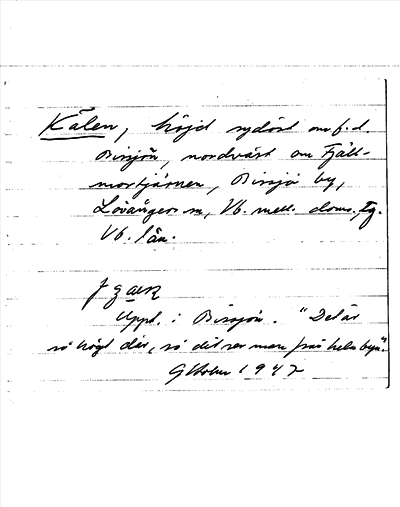 Kälen, höjd sydöst om f.d.
Bissjön, nordväst om Fjäll-
mortjärnen, Bissjö by,
Lövångers sn, Vb. mell. doms. tg.
Vb. län.
Uppt. i Bissjön. "Det är
så högt där, så dit ser man från hela byn."
G Holm 1947